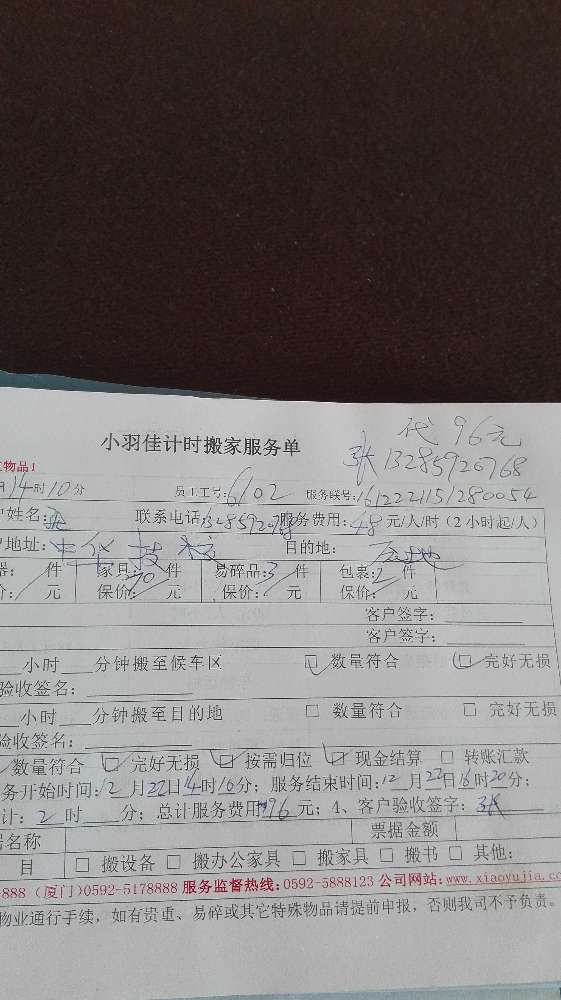 代 96元
小羽佳计时搬家服务单
张13285920768
物品1
月14时10分 员工工号:6102 服务联号:1612221151280054
户姓名:张 联系电话: 服务费用:48元/人/时(2小时起/人)
户地址:中华技校 目的地:
器: 件 家具:70件 易碎品:3件 包裹:2件
价: 元 保价: 元 保价: 元 保价: 元
客户签字:
客户签字:
小时 分钟搬至候车区 ☑ 数量符合 ☐ 完好无损
验收签名:
小时 分钟搬至目的地 ☐ 数量符合 ☐ 完好无损
验收签名:
数量符合 ☑ 完好无损 ☑ 按需归位 ☑ 现金结算 ☐ 转账汇款
务开始时间:12月22日14时10分; 服务结束时间:12月22日16时20分;
计:2时 分; 总计服务费用 96元; 4、客户验收签字:张
据名称 票据金额
目 ☐ 搬设备 ☐ 搬办公家具 ☐ 搬家具 ☐ 搬书 ☐ 其他:
888(厦门)0592-5178888 服务监督热线:0592-5888123 公司网站:www.xiaoyujia.co
物业通行手续, 如有贵重、易碎或其它特殊物品请提前申报, 否则我司不予负责。